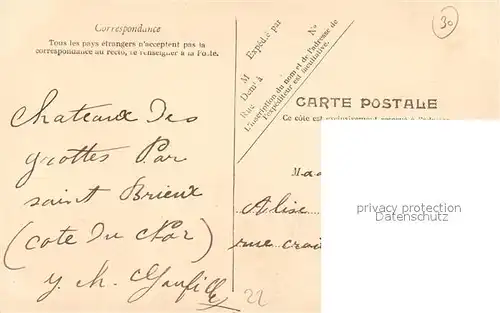 Correspondance
Tous les pays étrangers n'acceptent pas la
correspondance au recto, se renseigner à la Poste.
Chateaux des
grottes Par
saint Brieux
(cote du Nor)
y. ch.
Expédié par
M
Demt à
Rue
N°
L'inscription du nom et de l'adresse de
l'expéditeur est facultative.
CARTE POSTALE
Ce côté est exclusivement réservé à l'adresse
Ma
Alise
rue
privacy protection
Datenschutz
30
22